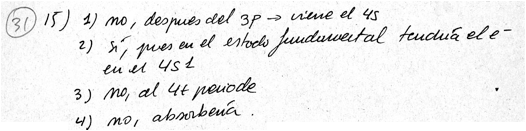 31 15) 1) no, despues del 3p → viene el 4s
2) Sí, pues en el estado fundamental tendría el e-
en el 4S1
3) no, al 4t periode
4) no, absorbería.